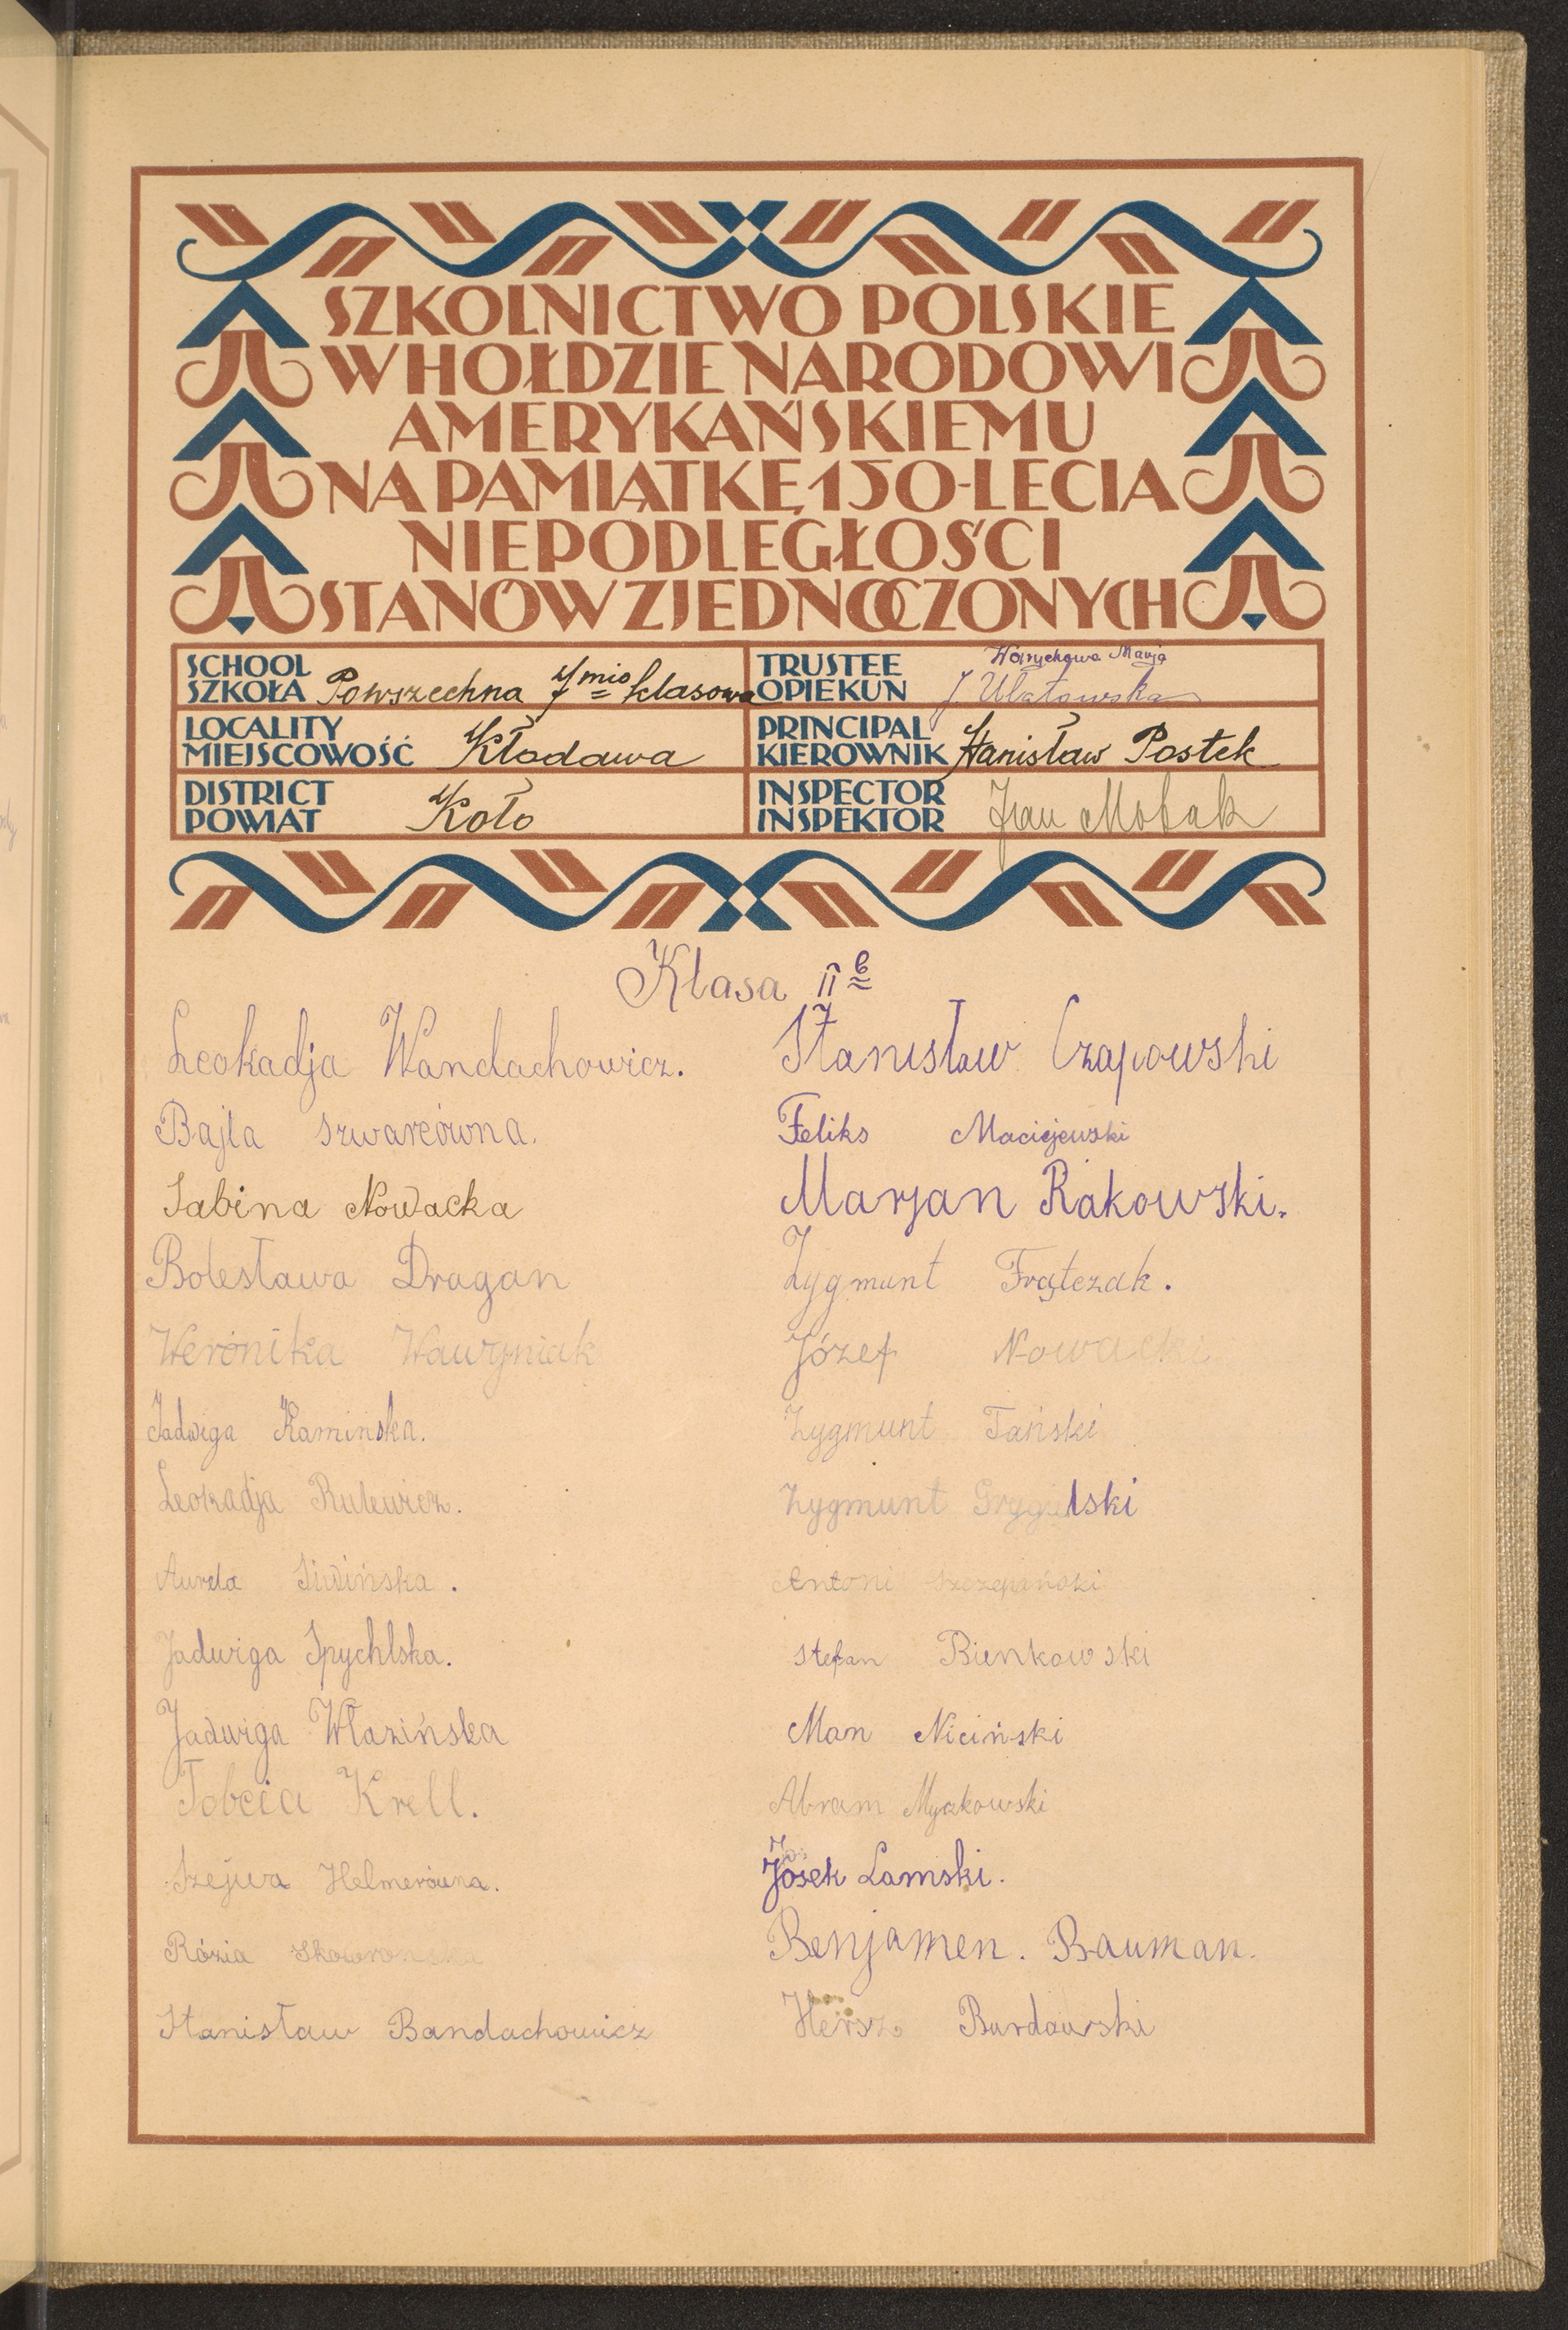 SZKOLNICTWO POLSKIE
W HOŁDZIE NARODOWI
AMERYKAŃSKIEMU
NA PAMIĄTKĘ 150-LECIA
NIEPODLEGŁOŚCI
STANÓW ZJEDNOCZONYCH
SCHOOL
SZKOŁA Powszechna 7mio klasowa
TRUSTEE Warychowa Marja
OPIEKUN J. Ulatowska
LOCALITY
MIEJSCOWOŚĆ Kłodawa
PRINCIPAL
KIEROWNIK Stanisław Postek
DISTRICT
POWIAT Koło
INSPECTOR
INSPEKTOR Jan
Klasa II b
Leokadja Wandachowicz.
Bajla Szwarcówna.
Sabina Nowacka
Bolesława Dragan
Weronika Wawrzyniak
Jadwiga Kamińska.
Leokadja Rulewicz.
Aurela Siwińska.
Jadwiga Spychlska.
Jadwiga Włazińska
Tobcia Krell.
Szejwa Helmerówna.
Rózia Skowrońska
Stanisław Bandachowicz
Stanisław Czapowski
Feliks Maciejewski
Marjan Rakowski.
Zygmunt Frątczak.
Józef Nowacki
Zygmunt Tański
Zygmunt Grygielski
Antoni Szczepański
Stefan Bienkowski
Man Niciński
Abram Myczkowski
Josek Lamski.
Benjamen. Bauman.
Hersz Burdowski